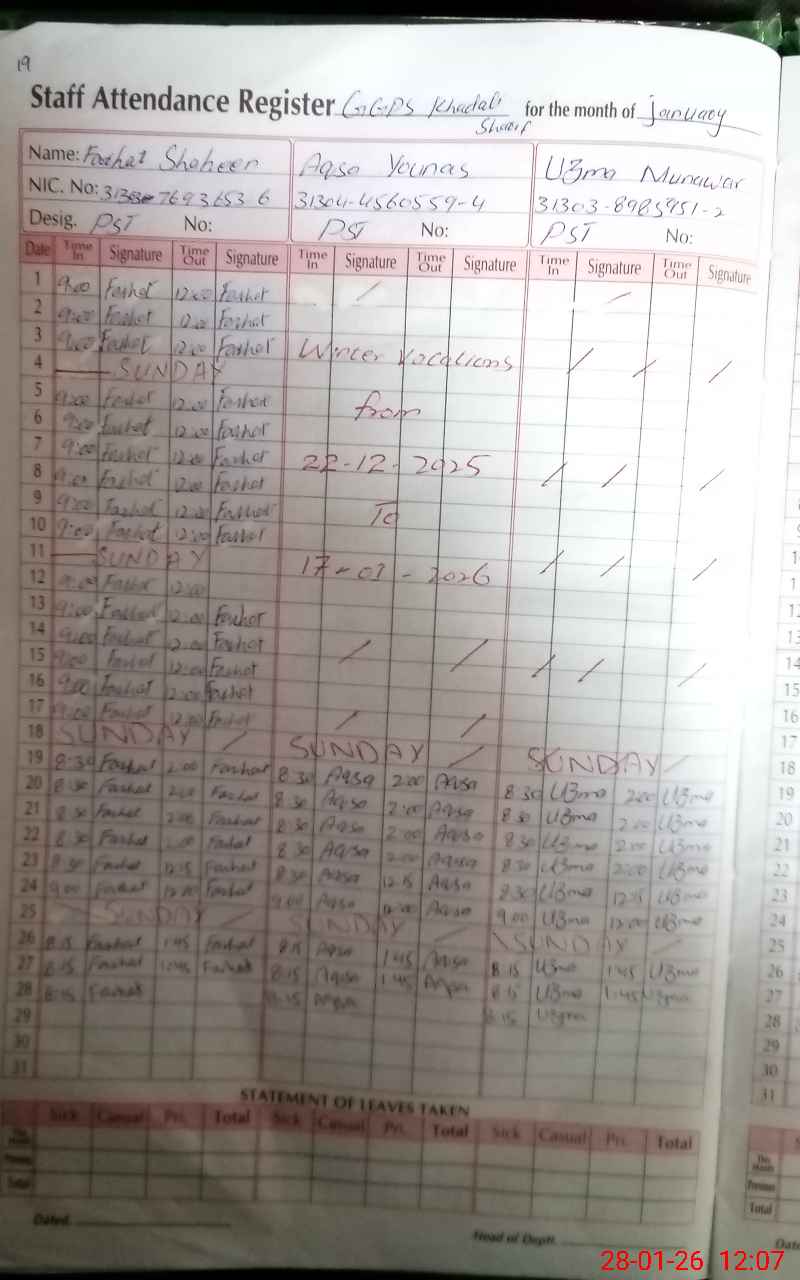 19
Staff Attendance Register GGPS Khadali Sharif for the month of january
Name: Farhat Shaheen Aqsa Younas Uzma Munawar
NIC. No: 31304-4560559-4 31303-8985951-2
Desig. PST No: PST No: PST No:
Date Time In Signature Time Out Signature Time In Signature Time Out Signature Time In Signature Time Out Signature
1 9:00 Farhat 12:00 Farhat
2 9:00 Farhat 12:00 Farhat
3 9:00 Farhat 12:00 Farhat Winter Vacations
4 SUNDAY
5 9:00 Farhat 12:00 Farhat from
6 9:00 Farhat 12:00 Farhat
7 9:00 Farhat 12:00 Farhat 22-12-2025
8 9:00 Farhat 12:00 Farhat
9 9:00 Farhat 12:00 Farhat To
10 9:00 Farhat 12:00 Farhat
11 SUNDAY 17-01-2026
12 9:00 Farhat 12:00
13 9:00 Farhat 12:00 Farhat
14 9:00 Farhat 12:00 Farhat
15 9:00 Farhat 12:00 Farhat
16 9:00 Farhat 12:00 Farhat
17 9:00 Farhat 12:00 Farhat
18 SUNDAY SUNDAY SUNDAY
19 8:30 Farhat 2:00 Farhat 8:30 Aqsa 2:00 Aqsa 8:30 Uzma 2:00 Uzma
20 8:30 Farhat 2:00 Farhat 8:30 Aqsa 2:00 Aqsa 8:30 Uzma 2:00 Uzma
21 8:30 Farhat 2:00 Farhat 8:30 Aqsa 2:00 Aqsa 8:30 Uzma 2:00 Uzma
22 8:30 Farhat 2:00 Farhat 8:30 Aqsa 2:00 Aqsa 8:30 Uzma 2:00 Uzma
23 8:30 Farhat 12:15 Farhat 8:30 Aqsa 12:15 Aqsa 8:30 Uzma 12:15 Uzma
24 9:00 Farhat 12:00 Farhat 9:00 Aqsa 12:00 Aqsa 9:00 Uzma 12:00 Uzma
25 SUNDAY SUNDAY SUNDAY
26 8:15 Farhat 1:45 Farhat 8:15 Aqsa 1:45 Aqsa 8:15 Uzma 1:45 Uzma
27 8:15 Farhat 1:45 Farhat 8:15 Aqsa 1:45 Aqsa 8:15 Uzma 1:45 Uzma
28 8:15 Farhat 8:15 Aqsa 8:15 Uzma
29
30
31
STATEMENT OF LEAVES TAKEN
Sick Casual Pri. Total Sick Casual Pri. Total Sick Casual Pri. Total
This Month
Previous
Total
Dated
Head of Deptt.
28-01-26 12:07